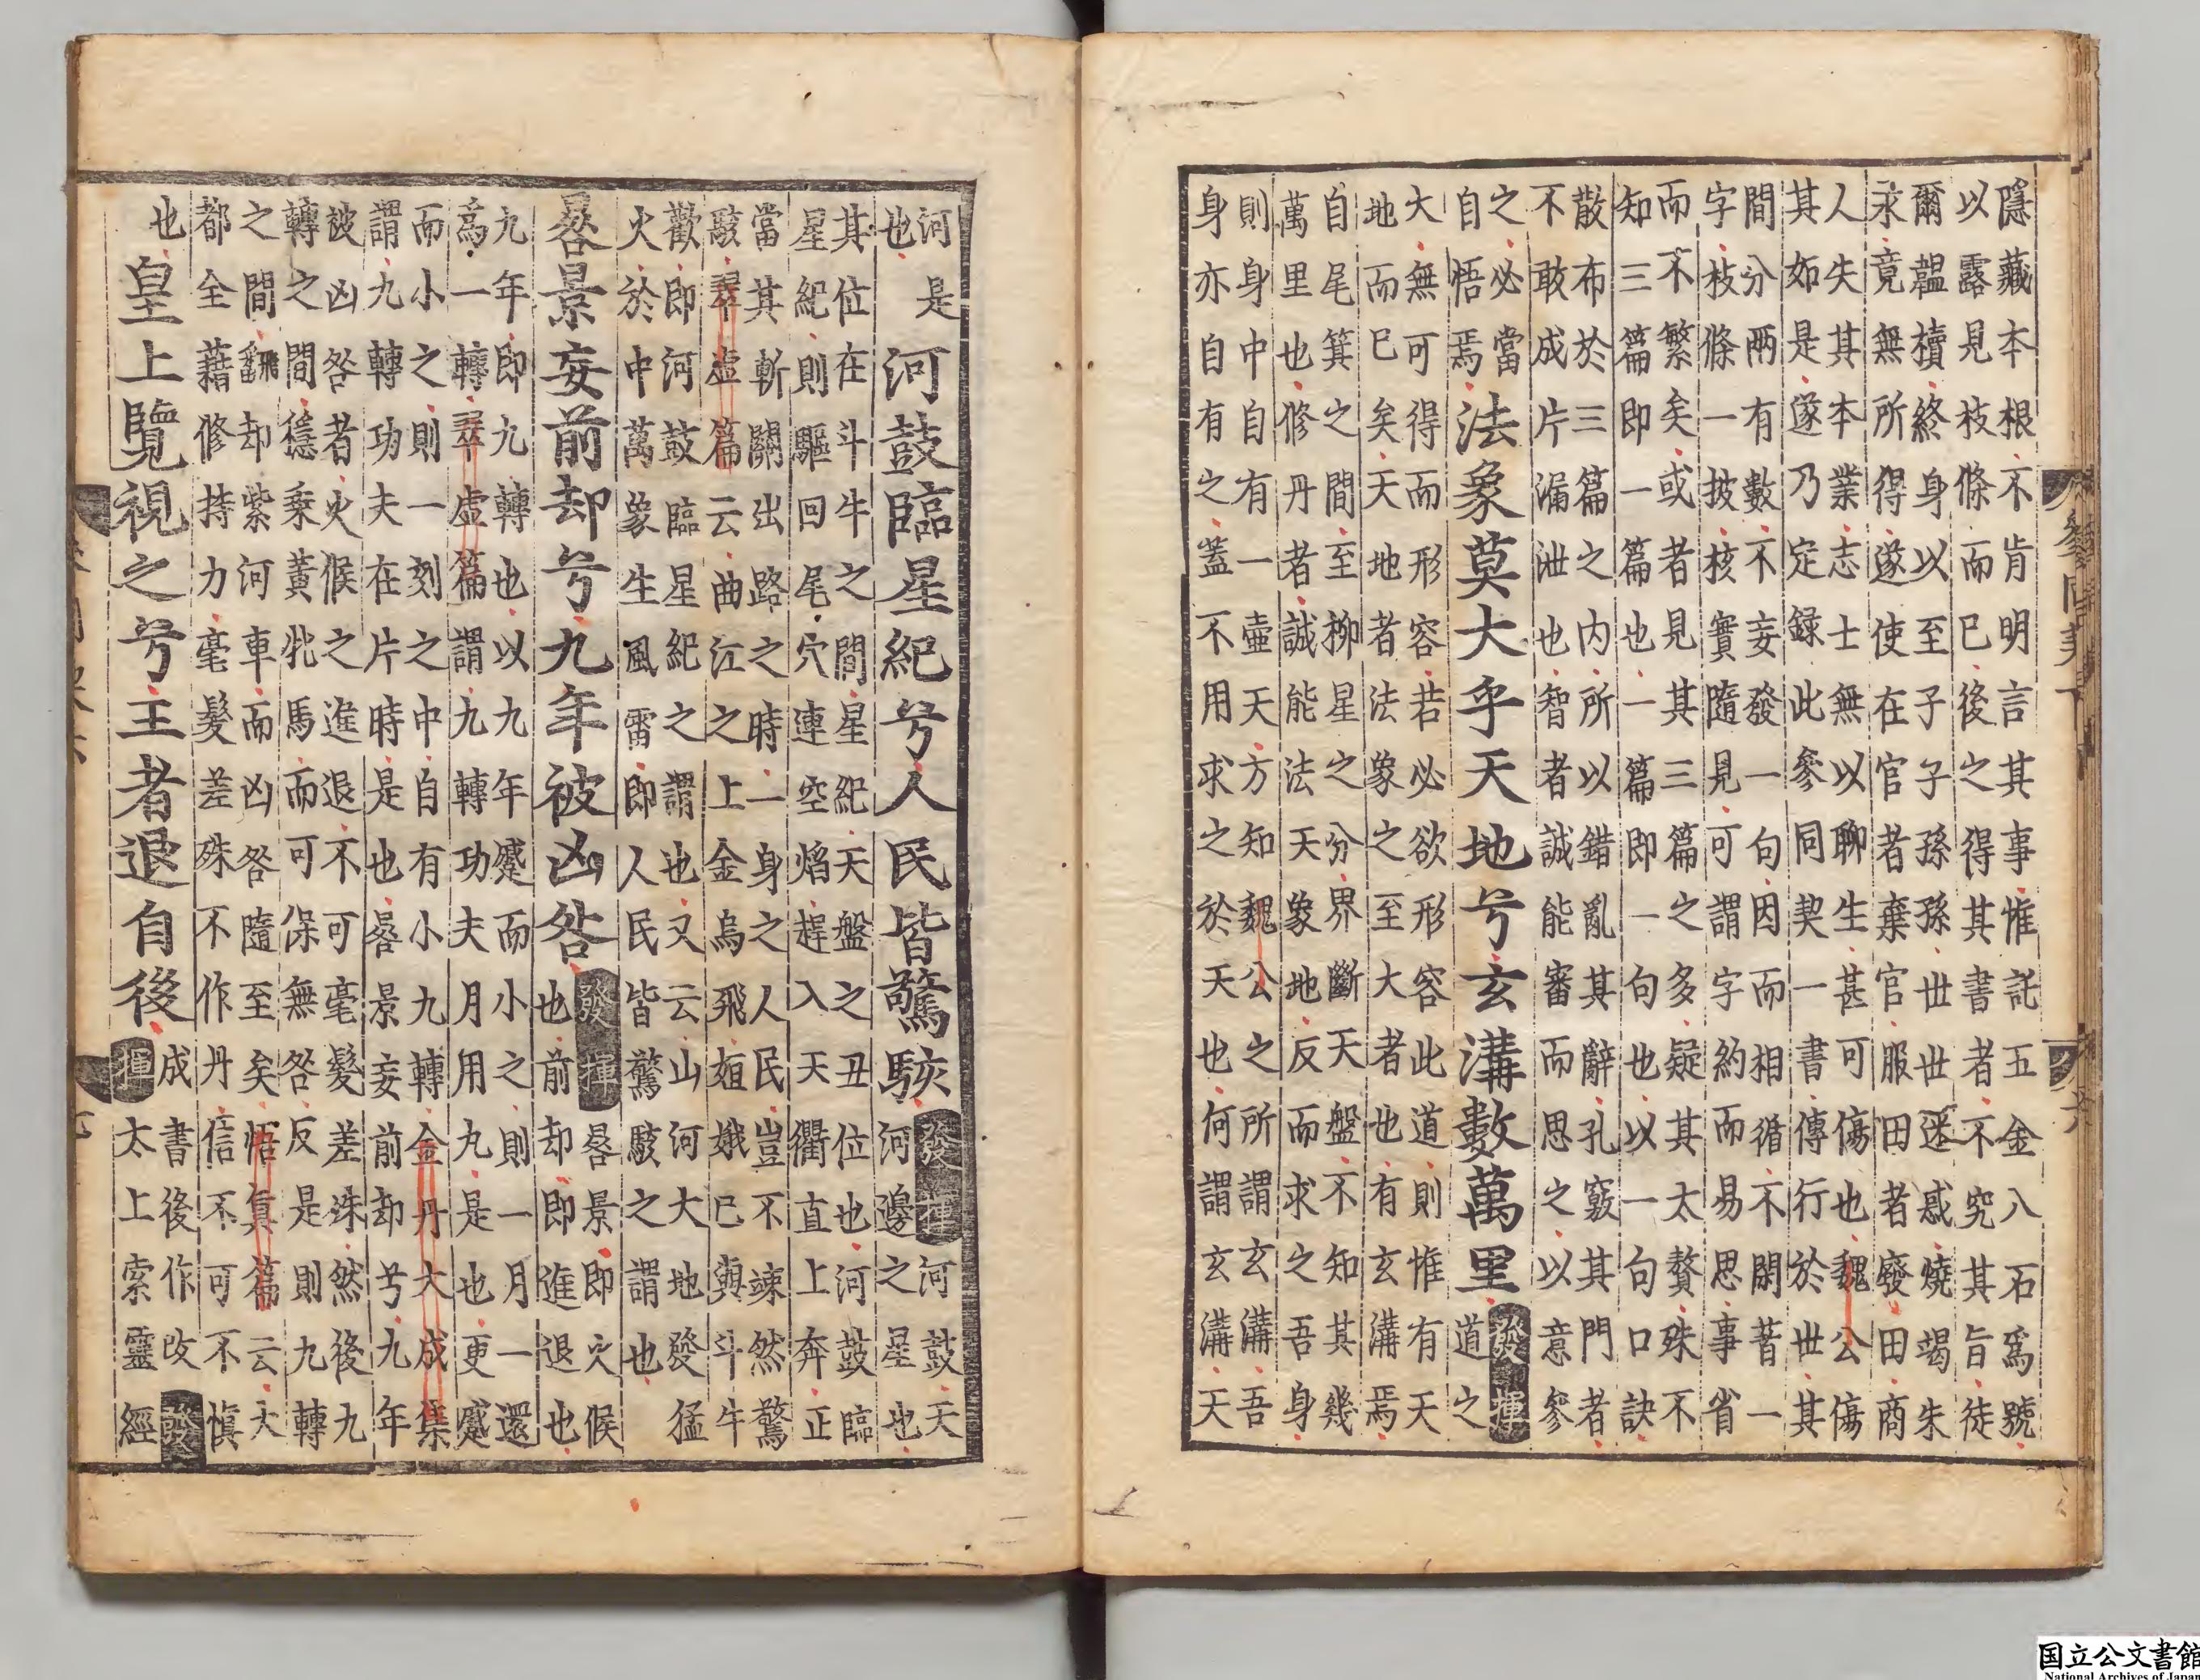 隱藏本根不肯明言其事惟託五金八石爲號
以露見枝條而已後之得其書者不究其旨徒
爾韞櫝終身以至子子孫孫世世迷惑燒竭朱
汞竟無所得遂使在官者棄官服田者廢田商
人失其本業志士無以聊生甚可傷也魏公傷
其如是遂乃定録此參同契一書傳行於世其
間分兩有數不妄發一句因而相循不閑昔一
字枝條一披核實隨見可謂字約而易思事省
而不繁矣或者見其三篇之多疑其太贅殊不
知三篇即一篇也一篇即一句也以一句口訣
散布於三篇之内所以錯亂其辭孔竅其門者
不敢成片漏泄也智者誠能審而思之以意參
之必當
自悟焉
法象莫大乎天地兮玄溝數萬里
發揮
道之
大無可得而形容若必欲形容此道則惟有天
地而已矣天地者法象之至大者也有玄溝焉
自尾箕之間至柳星之分界斷天盤不知其幾
萬里也修丹者誠能法天象地反而求之吾身
則身中自有一壷天方知魏公之所謂玄溝吾
身亦自有之蓋不用求之於天也何謂玄溝天
參同契下
六
河是
也
河鼓臨星紀兮人民皆驚駭
發揮
河鼓天
河邊之星也
其位在斗牛之間星紀天盤之丑位也河鼓臨
星紀則驅回尾穴連空焰趕入天衢直上奔正
當其斬關出路之時一身之人民豈不竦然驚
駭翠虚篇云曲江之上金烏飛姮娥已與斗牛
歡即河鼓臨星紀之謂也又云山河大地發猛
火於中萬象生風雷即人民皆驚駭之謂也
晷景妄前却兮九年被凶咎
發揮
晷景即火候
也前却即進退也
九年即九轉也以九年蹙而小之則一月一還
爲一轉翠虚篇謂九轉功夫月用九是也更蹙
而小之則一刻之中自有小九轉金丹大成集
謂九轉功夫在片時是也晷景妄前却兮九年
被凶咎者火候之進退不可毫髮差洙然後九
轉之間穩乘黃牝馬而可保無咎反是則九轉
之間飜却紫河車而凶咎隨至矣悟真篇云大
都全藉修持力毫髮差殊不作丹信不可不愼
也
皇上覽視之兮王者退自後
成書後作改
發揮
太上索靈經
國立公文書館
National Archives of Japan